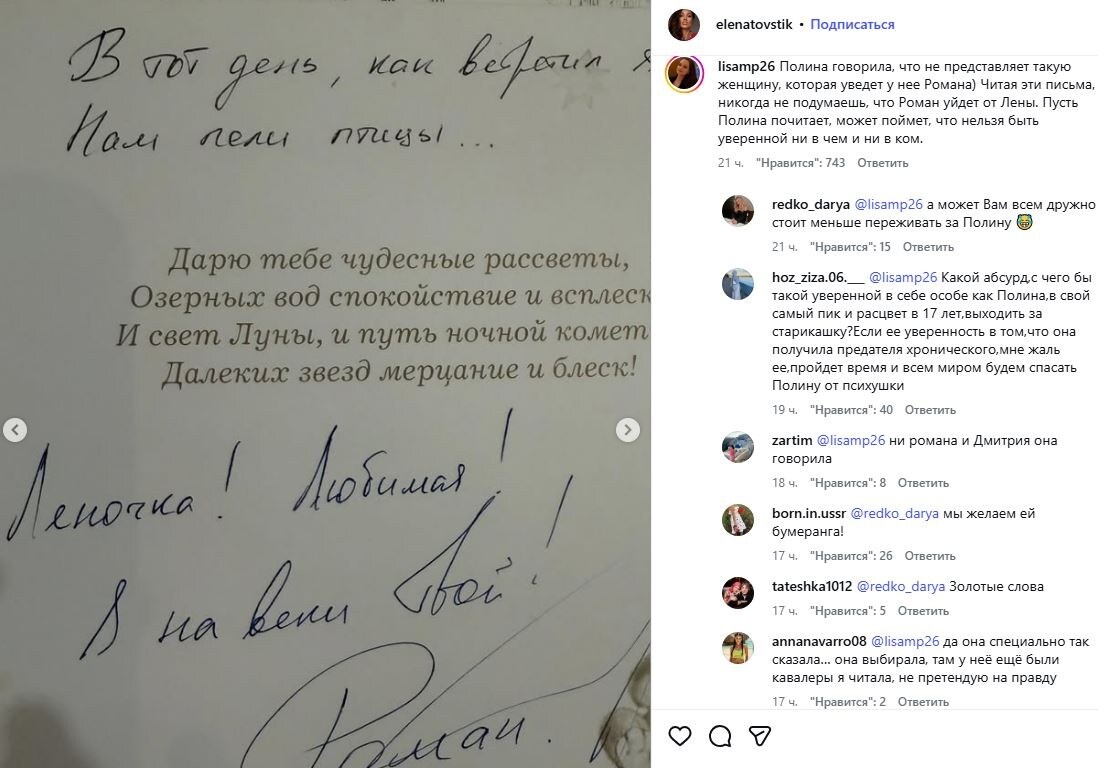 В тот день, как встретил я
Нам пели птицы...
Дарю тебе чудесные рассветы,
Озерных вод спокойствие и всплеск
И свет Луны, и путь ночной комет
Далеких звезд мерцание и блеск!
Леночка! Любимая!
Я на веки твой!
Роман.
elenatovstik • Подписаться
lisamp26 Полина говорила, что не представляет такую
женщину, которая уведет у нее Романа) Читая эти письма,
никогда не подумаешь, что Роман уйдет от Лены. Пусть
Полина почитает, может поймет, что нельзя быть
уверенной ни в чем и ни в ком.
21 ч. "Нравится": 743 Ответить
redko_darya @lisamp26 а может Вам всем дружно
стоит меньше переживать за Полину 😹
21 ч. "Нравится": 15 Ответить
hoz_ziza.06.___ @lisamp26 Какой абсурд,с чего бы
такой уверенной в себе особе как Полина,в свой
самый пик и расцвет в 17 лет,выходить за
старикашку?Если ее уверенность в том,что она
получила предателя хронического,мне жаль
ее,пройдет время и всем миром будем спасать
Полину от психушки
19 ч. "Нравится": 40 Ответить
zartim @lisamp26 ни романа и Дмитрия она
говорила
18 ч. "Нравится": 8 Ответить
born.in.ussr @redko_darya мы желаем ей
бумеранга!
17 ч. "Нравится": 26 Ответить
tateshka1012 @redko_darya Золотые слова
17 ч. "Нравится": 5 Ответить
annanavarro08 @lisamp26 да она специально так
сказала... она выбирала, там у неё ещё были
кавалеры я читала, не претендую на правду
17 ч. "Нравится": 2 Ответить